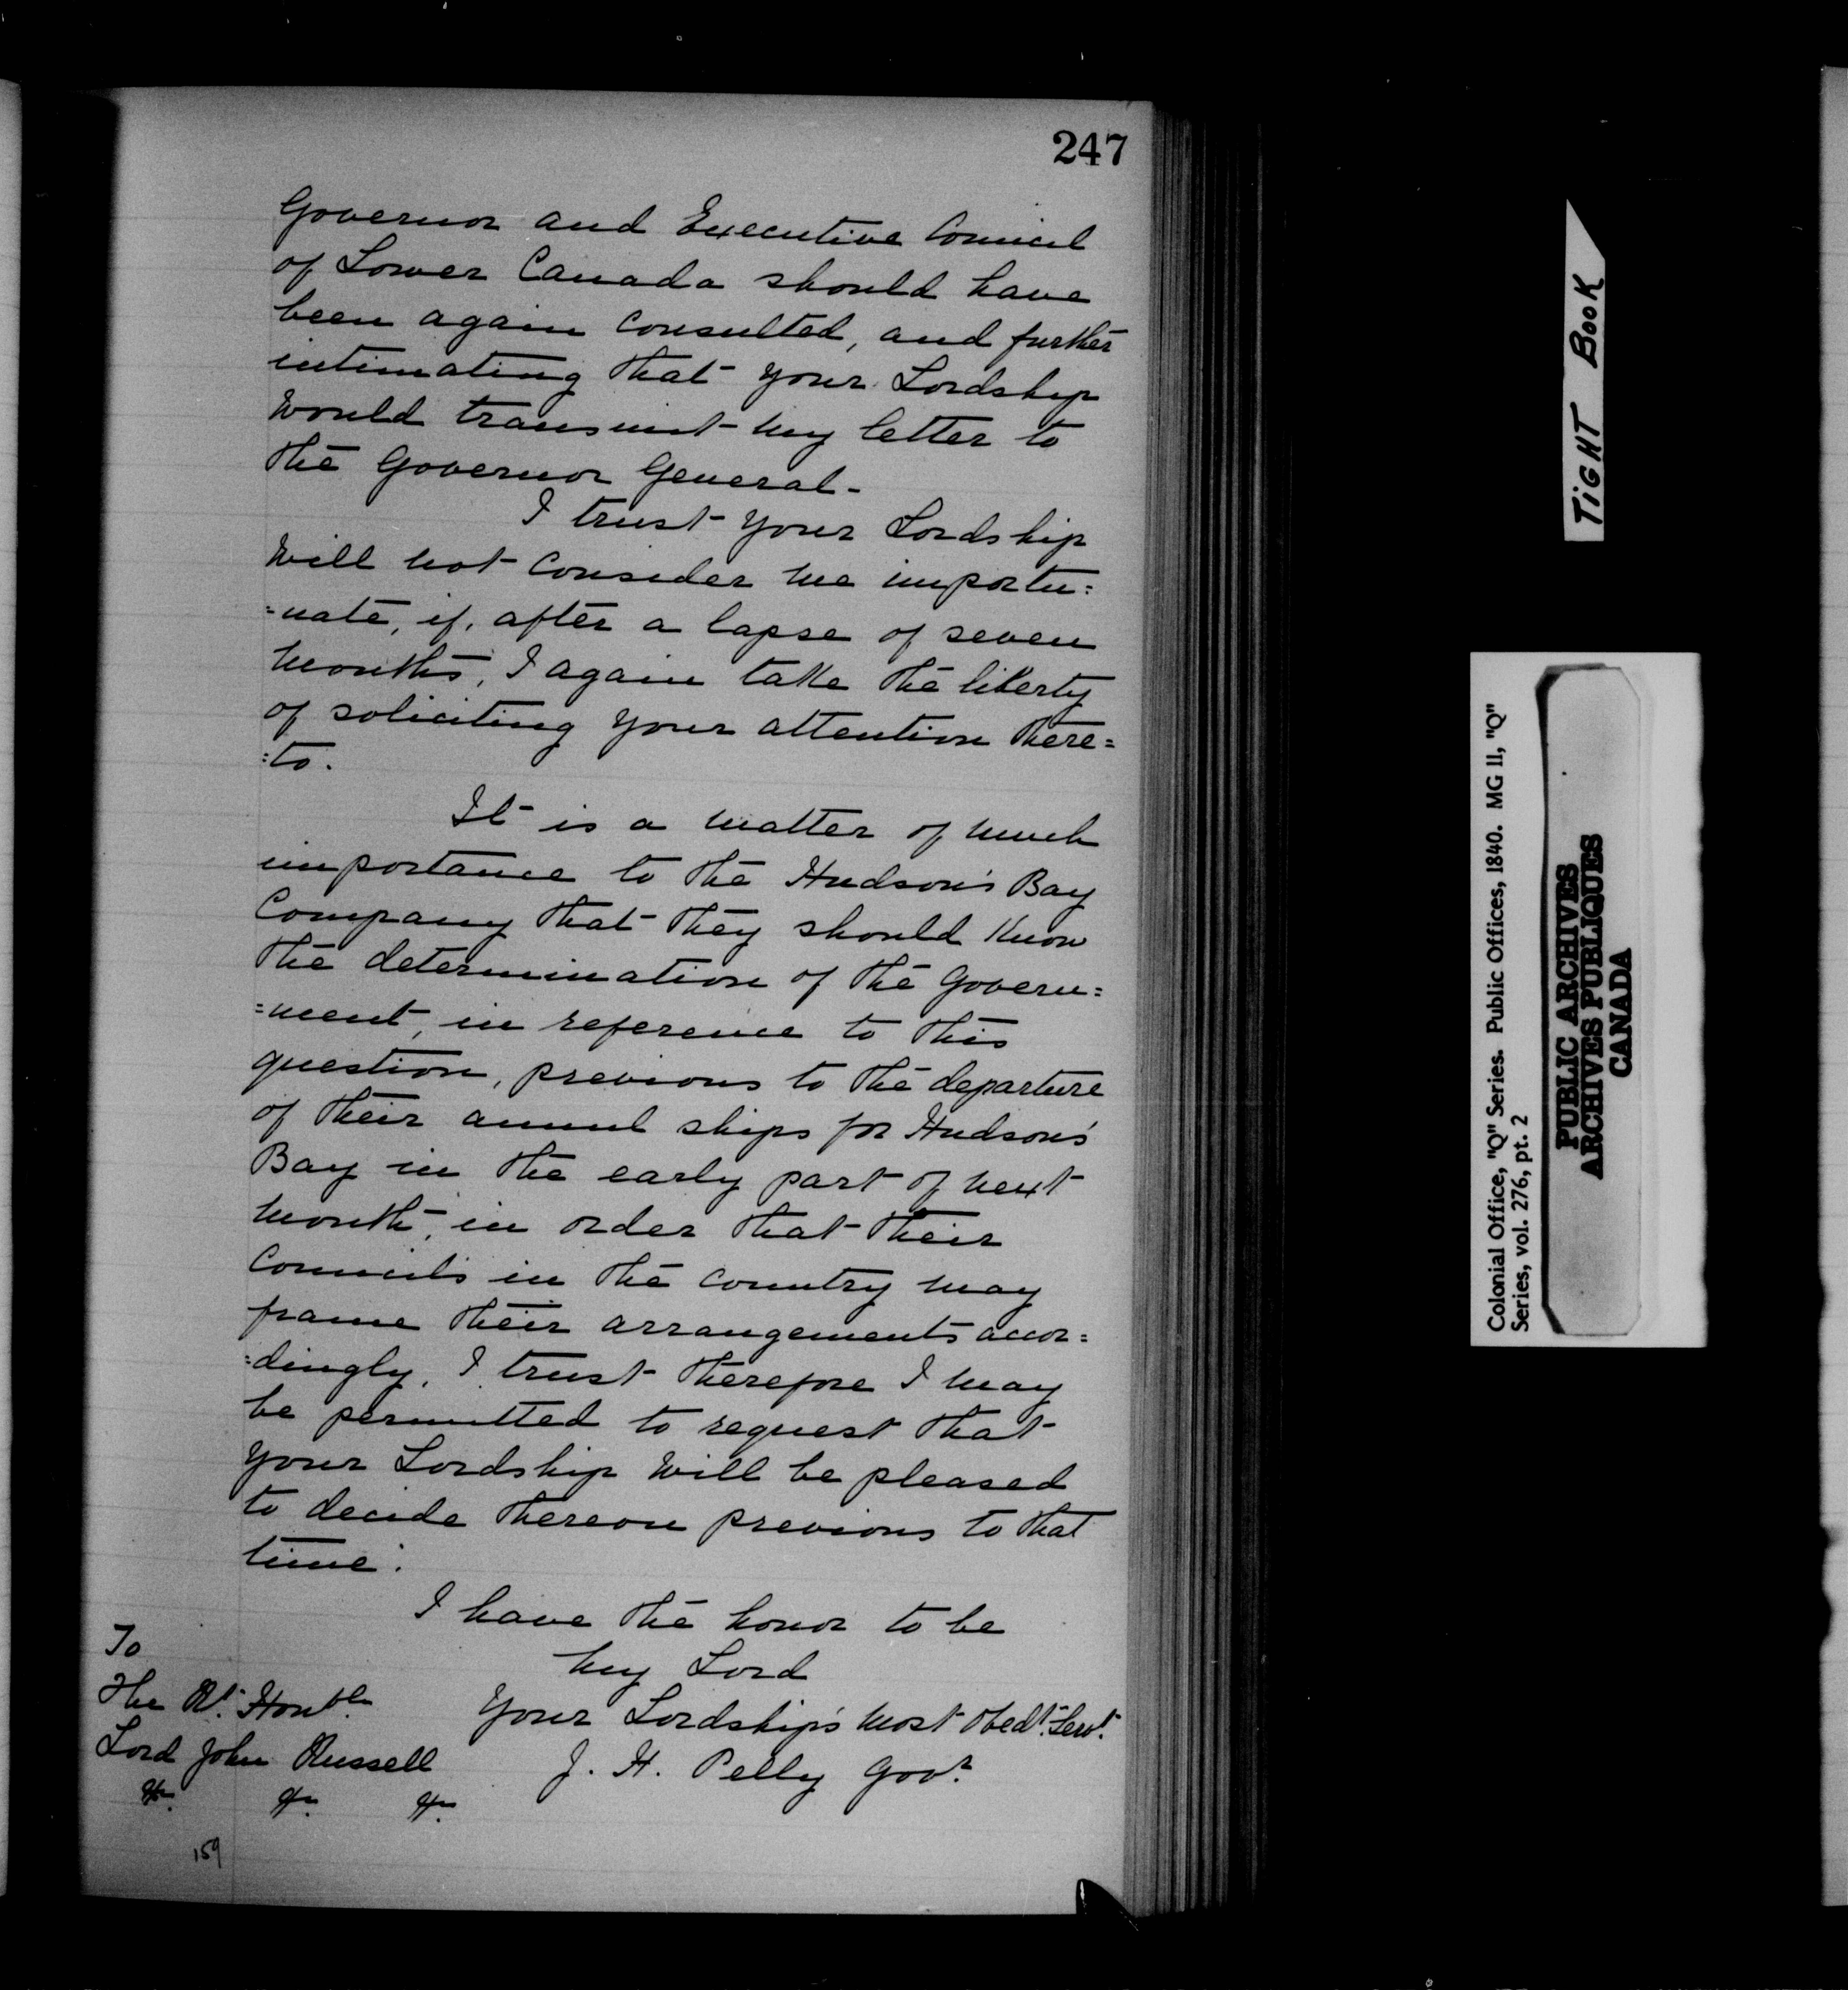 247
Governor and Executive Council
of Lower Canada should have
been again consulted, and further
intimating that your Lordship
would transmit my letter to
the Governor General -
I trust your Lordship
will not consider me importu=
=nate, if, after a lapse of seven
months, I again take the liberty
of soliciting your attention there=
=to.
It is a matter of much
importance to the Hudson's Bay
Company that they should know
the determination of the Govern=
=ment, in reference to this
question, previous to the departure
of their annual ships for Hudson's
Bay in the early part of next
month, in order that their
Councils in the country may
frame their arrangements accor=
=dingly, I trust therefore I may
be permitted to request that
your Lordship will be pleased
to decide thereon previous to that
time.
I have the honor to be
My Lord
Your Lordship's most obedt. Servt.
J. H. Pelly Govr.
To
The Rt. Honble
Lord John Russell
&c. &c. &c.
159
TIGHT BOOK
Colonial Office, "Q" Series. Public Offices, 1840. MG 11, "Q"
Series, vol. 276, pt. 2
PUBLIC ARCHIVES
ARCHIVES PUBLIQUES
CANADA